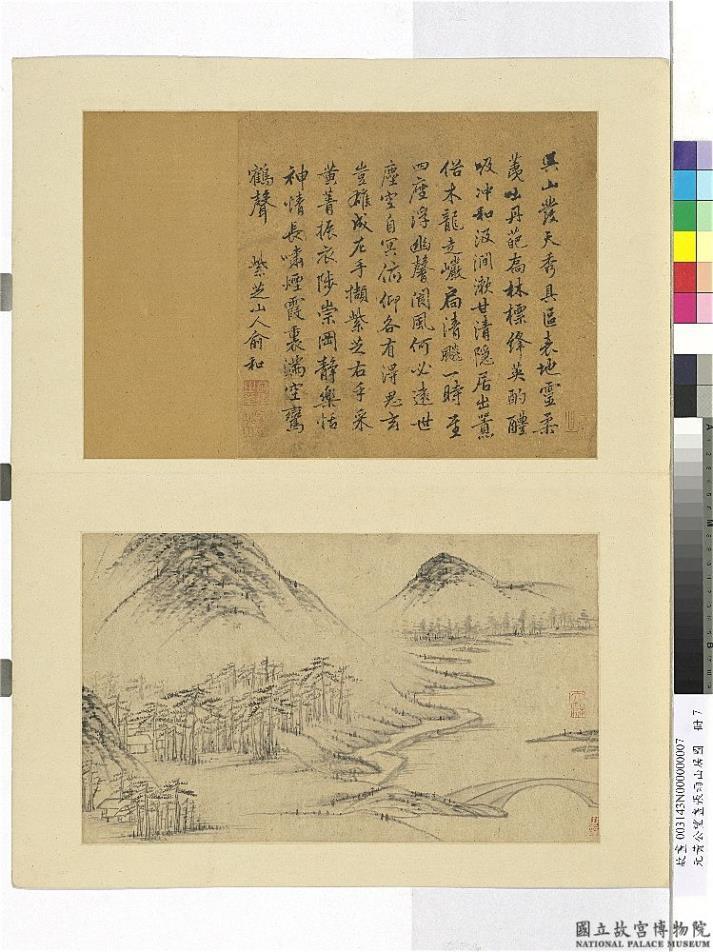 吳山發天秀具區表地靈柔
荑吐丹葩高林標絳英酌醴
吸沖和汲澗漱甘清隱居出囂
俗木龍立巖扃清颸一時至
四座浮幽馨閬風何必遠世
塵空自冥俯仰各有得思玄
豈雄成左手擷紫芝右手采
黃菁振衣陟崇岡靜樂恬
神情長嘯煙霞裏端空鸞
鶴聲 紫芝山人俞和
故畫003143N000000007
元黃公望 張雨山居圖 冊 7
國立故宮博物院
NATIONAL PALACE MUSEUM